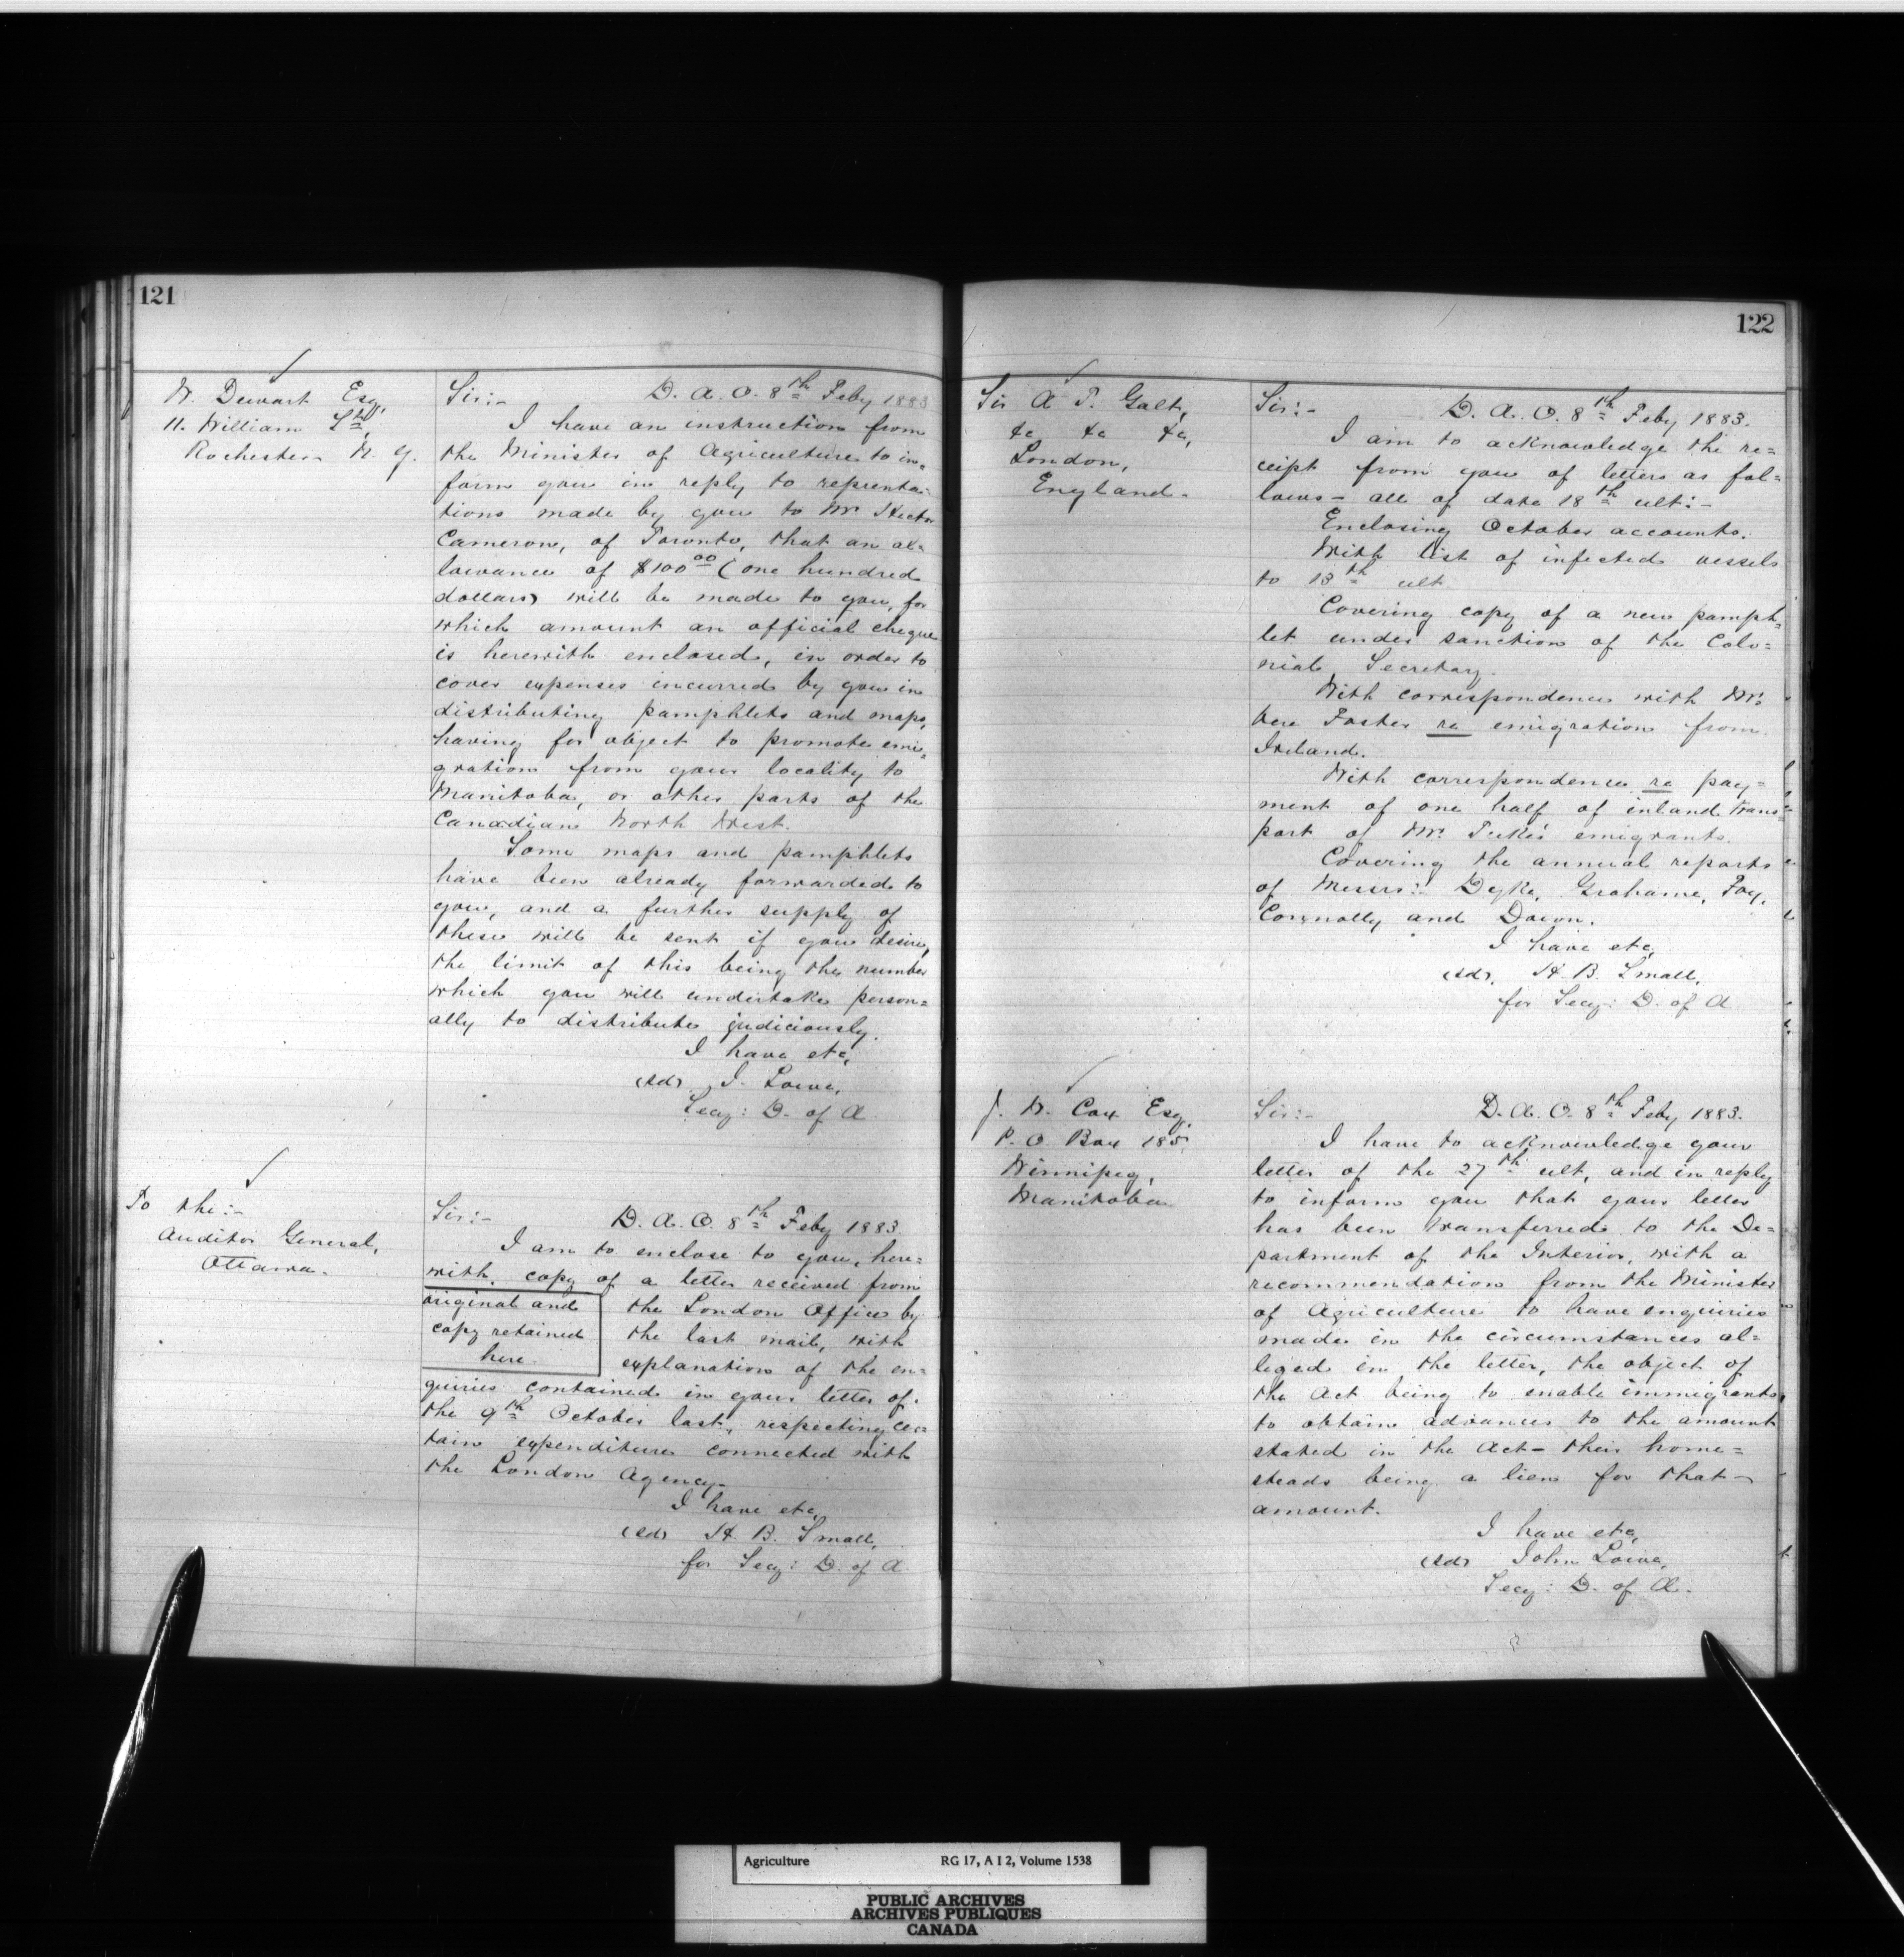 121
W. Dewart Esq,
11. William St,
Rochester N. Y.
Sir:- D. A. O. 8th Feby 1883
I have an instruction from
the Minister of Agriculture to in=
form you in reply to represnta=
tions made by you to Mr Hector
Cameron, of Toronto, that an al=
lowance of $100 00 (one hundred
dollars) will be made to you, for
which amount an official cheque
is herewith enclosed, in order to
cover expenses incurred by you in
distributing pamphlets and maps,
having for object to promote emi=
gration from your locality to
Manitoba, or other parts of the
Canadian North West.
Some maps and pamphlets
have been already forwarded to
you, and a further supply of
these will be sent if you desire,
the limit of this being the number
which you will undertake person=
ally to distribute judiciously.
I have etc,
(sd) J. Lowe,
Secy: D. of A
To the:-
Auditor General,
Ottawa.
Sir:- D. A. O. 8th Feby 1883.
I am to enclose to you, here=
with, copy of a letter received from
original and
copy retained
here.
the London Office by
the last mail, with
explanation of the en=
quiries contained in your letter of
the 9th October last, respecting cer=
tain expenditure connected with
the London Agency.
I have etc,
(sd) H. B. Small,
for Secy: D. of A.
122
Sir A T. Galt,
&c &c &c,
London,
England.
Sir:- D. A. O. 8th Feby 1883.
I am to acknowledge the re=
ceipt from you of letters as fol=
lows - all of date 18th ult:-
Enclosing October accounts.
With list of infected vessels
to 13th ult.
Covering copy of a new pamph=
let under sanction of the Colo=
nial Secretary.
With correspondence with Mr.
Vere Foster re emigration from
Ireland.
With correspondence re pay=
ment of one half of inland trans=
port of Mr. Tuke's emigrants.
Covering the annual reports
of Messrs:- Dyke, Grahame, Foy,
Connolly and Down.
I have etc,
(sd). H. B. Small,
for Secy: D. of A
J. W. Cox Esq,
P. O. Box 185,
Winnipeg,
Manitoba
Sir:- D. A. O. 8th Feby 1883.
I have to acknowledge your
letter of the 27th ult, and in reply
to inform you that your letter
has been transferred to the De=
partment of the Interior, with a
recommendation from the Minister
of Agriculture to have enquiries
made in the circumstances al=
leged in the letter, the object of
the Act being to enable immigrants,
to obtain advances to the amount
stated in the Act - their home=
steads being a lien for that -
amount.
I have etc,
(sd) John Lowe,
Secy: D. of A.
Agriculture RG 17, A I 2, Volume 1538
PUBLIC ARCHIVES
ARCHIVES PUBLIQUES
CANADA